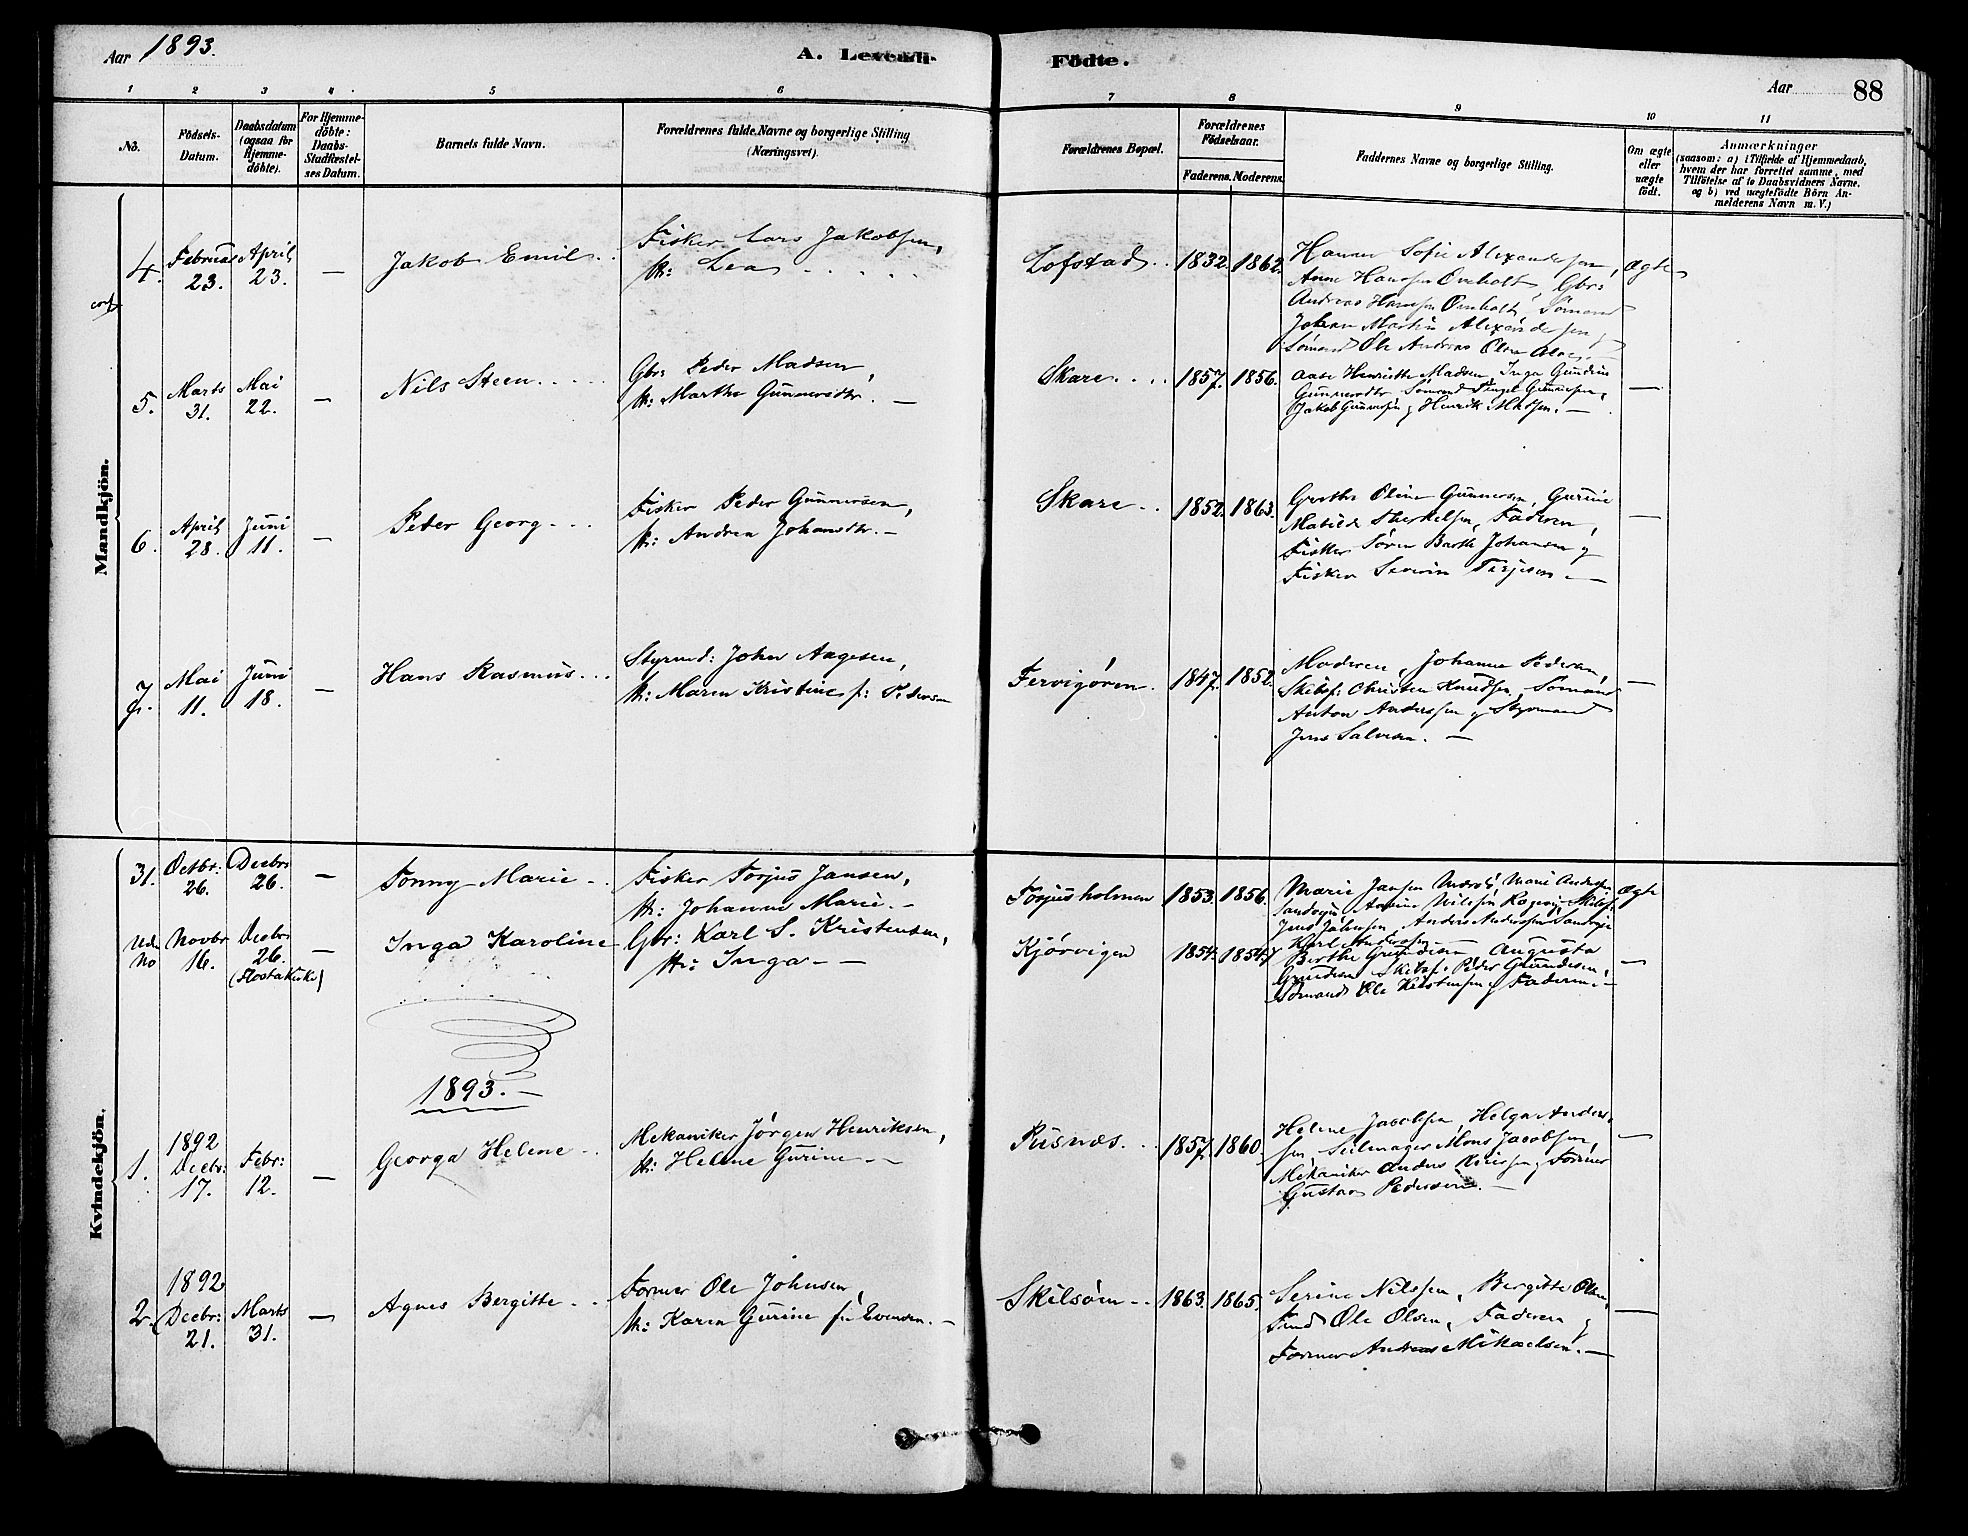 Aar 1893.
A. Levende
Födte.
Aar 88
1 2 3 4 5 6 7 8 9 10 11
No.
Födsels-
Datum.
Daabsdatum
(ogsaa for
Hjemme-
döbte).
For Hjemme-
döbte:
Daabs-
Stadfæstel-
ses Datum.
Barnets fulde Navn.
Forældrenes fulde Navne og borgerlige Stilling
(Næringsvei).
Forældrenes Bopæl.
Forældrenes
Födselsaar.
Faderens. Moderens.
Faddernes Navne og borgerlige Stilling.
Om ægte
eller
uægte
födt.
Anmærkninger
(saasom: a) i Tilfælde af Hjemmedaab,
hvem der har forrettet samme, med
Tilföielse af to Daabsvidners Navne,
og b) ved uægtefödte Börn An-
melderens Navn m. V.)
Mandkjön.
4.
Februar
23.
April
23.
—
Jakob Emil
Fisker Lars Jakobsen,
H: Lea
Lofstad
1832. 1862.
Hanne Sofie Alexandersen,
Anne Hansen Omholt, Gbr:
Andreas Hansen Omholt, Sömand
Johan Martin Alexandersen,
Sömand Ole Andreas Olsen
Ægte
5.
Marts
31.
Mai
22.
—
Nils Steen
Gbr: Peder Madsen,
H: Marthe Gunnersdtr. —
Skare
1857. 1856.
Aase Henriette Madsen, Inga Gundine
Gunnersdtr, Sömand Gunnersen,
Jakob Gunnersen & Henrik Madsen. —
—
6.
April
28.
Juni
11.
—
Peter Georg
Fisker Peder Gunnersen,
H: Andrea Johansdtr. —
Skare
1852. 1863.
Grethe Oline Gunnersen, Gurine
Matilde Therkelsen, Faderen,
Fisker Sören Barth Johansen &
Fisker Severin Terjesen —
—
7.
Mai
11.
Juni
18.
—
Hans Rasmus
Styrmd: John Aagesen,
H: Maren Kristine f: Pedersen
Fervigören
1847. 1852.
Moderen, Johanne Pedersen,
Skibsf: Christen Knudsen, Sömand
Anton Anderssen & Styrmand
Jens Salvesen. —
—
Kvindekjön.
31.
Octbr:
26.
Decbr:
26.
—
Tonny Marie
Fisker Torjus Jansen,
H: Johanne Marie. —
Torjusholmen
1853. 1856.
Marie Jansen Marie Andersen
Nilsen Skibsf:
Jens Anders Anderssen
Karl Anderssen
Ægte
Uden
No
Novbr
16.
Decbr:
26.
(Flosta Kirke)
—
Inga Karoline
Gbr: Karl S. Kristensen,
H: Inga —
Kjörvigen
1854. 1854.
Berthe Gundersen, Augusta
Gundersen, Skibsf: Peder Gundersen,
Sömand Ole Kristensen & Faderen. —
—
1893. —
1.
1892
Decbr:
17.
Febr:
12.
—
Georga Helene
Mekaniker Jörgen Henriksen,
H: Helene Gurine —
Pusnæs.
1857. 1860.
Helene Jacobsen, Helga Ander-
sen, Seilmager Mons Jacobsen,
Mekaniker Anders & Former
Gustav Pedersen. —
—
2.
1892
Decbr:
21.
Marts
31.
—
Agnes Bergitte
Former Ole Johnsen,
H: Karen Gurine f: Evensen. —
Skilsöm
1863. 1865.
Serine Nilssen, Bergitte Olsen,
Ole Olsen, Faderen &
Former Andreas Mikaelsen. —
—